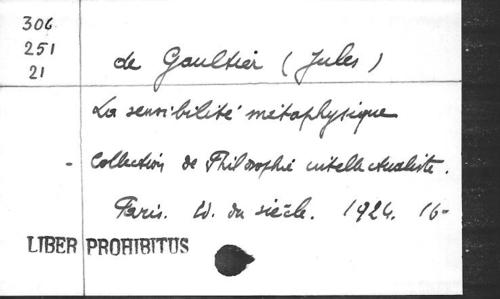 306
251
21
de Gaultier (Jules)
La sensibilité métaphysique
- Collection de Philosophie intellectualiste.
Paris. Ed. du siècle. 1924. 16-
LIBER PROHIBITUS